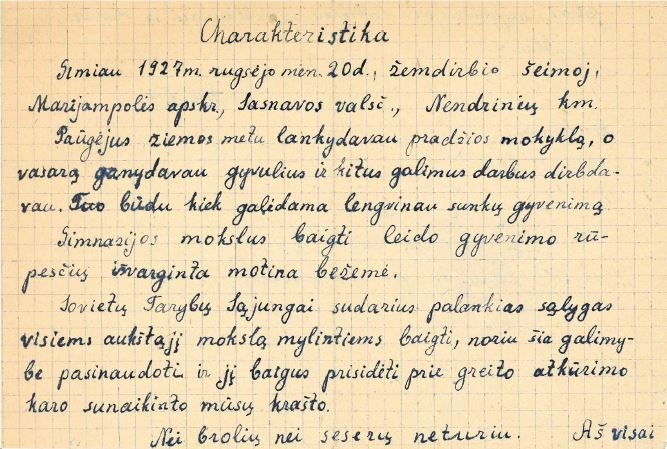 Charakteristika
Gimiau 1927m. rugsėjo mėn. 20d., žemdirbio šeimoj,
Marijampolės apskr., Sasnavos valsč., Nendrinių km.
Paūgėjus ziemos metu lankydavau pradžios mokyklą, o
vasarą ganydavau gyvulius ir kitus galimus darbus dirbda-
vau. Tuo būdu kiek galėdama lengvinau sunkų gyvenimą
Gimnazijos mokslus baigti leido gyvenimo rū-
pesčių išvarginta motina bežemė.
Sovietų Tarybų Sąjungai sudarius palankias sąlygas
visiems aukštąjį mokslą mylintiems baigti, noriu šia galimy-
be pasinaudoti ir jį baigus prisidėti prie greito atkūrimo
karo sunaikinto mūsų krašto.
Nei brolių nei seserų neturiu. Aš visai